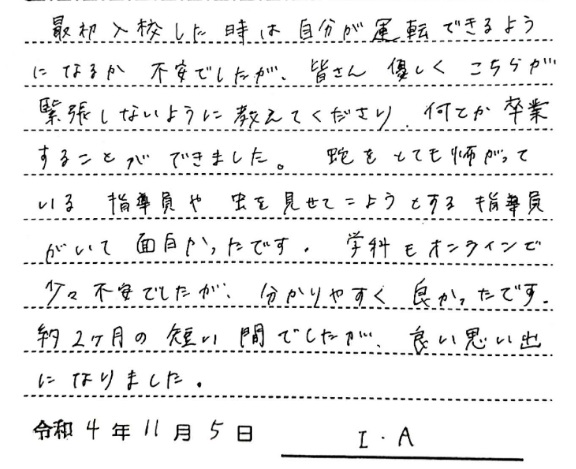 最初入校した時は自分が運転できるよう
になるか不安でしたが、皆さん優しくこちらが
緊張しないように教えてくださり、何とか卒業
することができました。蛇をとても怖がって
いる指導員や虫を見せてこようとする指導員
がいて面白かったです。学科もオンラインで
少々不安でしたが、分かりやすく良かったです。
約2ヶ月の短い間でしたが、良い思い出
になりました。
令和4年11月5日 I・A